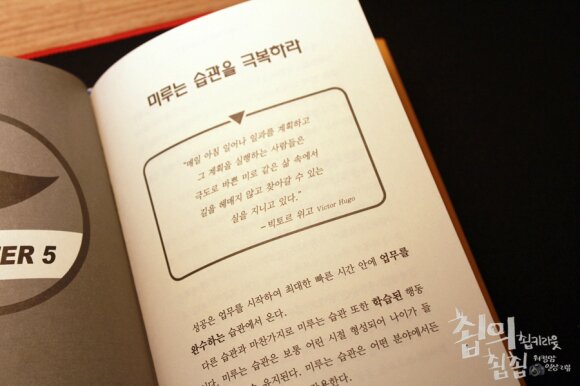 TER 5
미루는 습관을 극복하라
"매일 아침 일어나 일과를 계획하고
그 계획을 실행하는 사람들은
극도로 바쁜 미로 같은 삶 속에서
길을 헤매지 않고 찾아갈 수 있는
실을 지니고 있다."
– 빅토르 위고 Victor Hugo
성공은 업무를 시작하여 최대한 빠른 시간 안에 업무를
완수하는 습관에서 온다.
다른 습관과 마찬가지로 미루는 습관 또한 학습된 행동
이다. 미루는 습관은 보통 어린 시절 형성되어 나이가 들
유지된다. 미루는 습관은 어떤 분야에서든
칩의
칩칩
칩키라웃